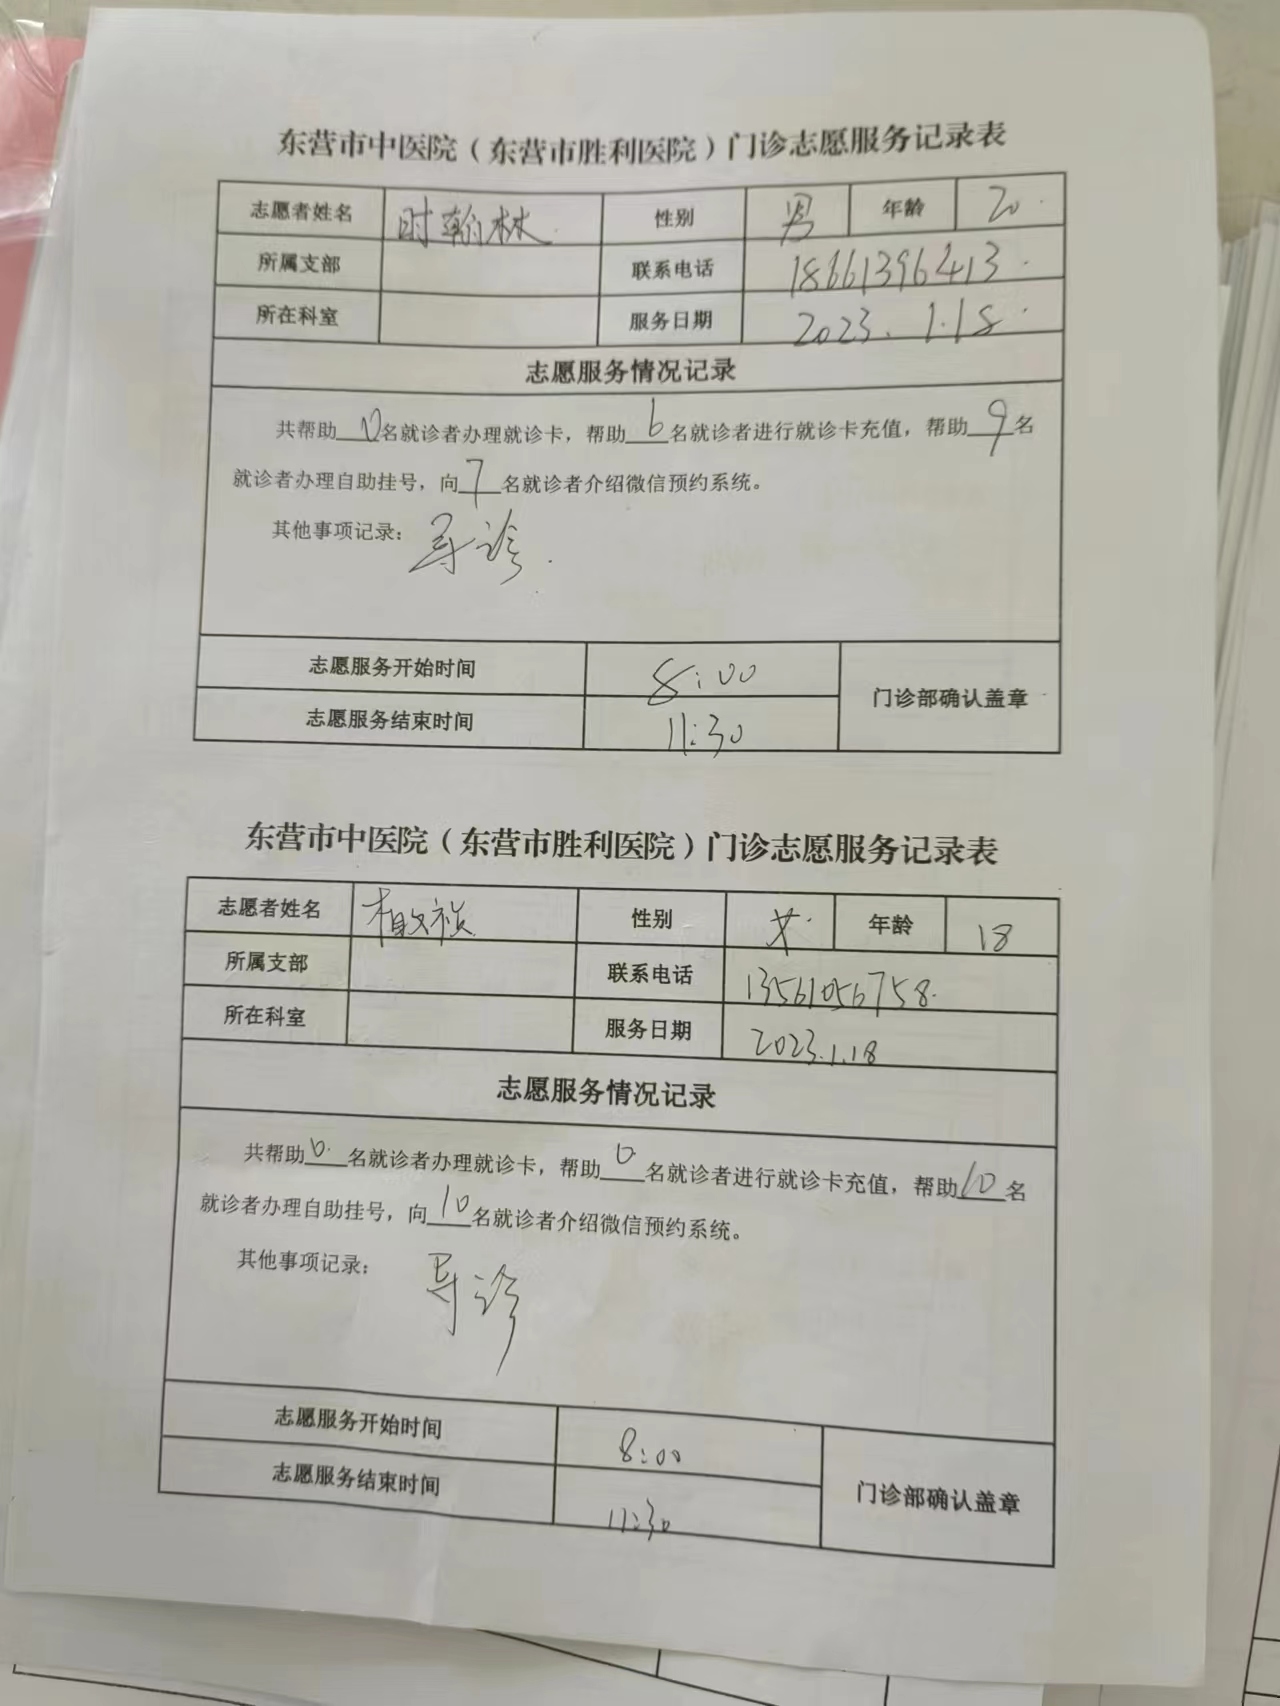 东营市中医院（东营市胜利医院）门诊志愿服务记录表
志愿者姓名 时翰林 性别 男 年龄 20
所属支部 联系电话 18661396413
所在科室 服务日期 2023.1.18
志愿服务情况记录
共帮助0名就诊者办理就诊卡，帮助6名就诊者进行就诊卡充值，帮助9名
就诊者办理自助挂号，向7名就诊者介绍微信预约系统。
其他事项记录：导诊.
志愿服务开始时间 8:00
门诊部确认盖章
志愿服务结束时间 11:30
东营市中医院（东营市胜利医院）门诊志愿服务记录表
志愿者姓名 性别 女 年龄 18
所属支部 联系电话 13561056758
所在科室 服务日期 2023.1.18
志愿服务情况记录
共帮助0名就诊者办理就诊卡，帮助0名就诊者进行就诊卡充值，帮助10名
就诊者办理自助挂号，向10名就诊者介绍微信预约系统。
其他事项记录：导诊
志愿服务开始时间 8:00
门诊部确认盖章
志愿服务结束时间 11:30